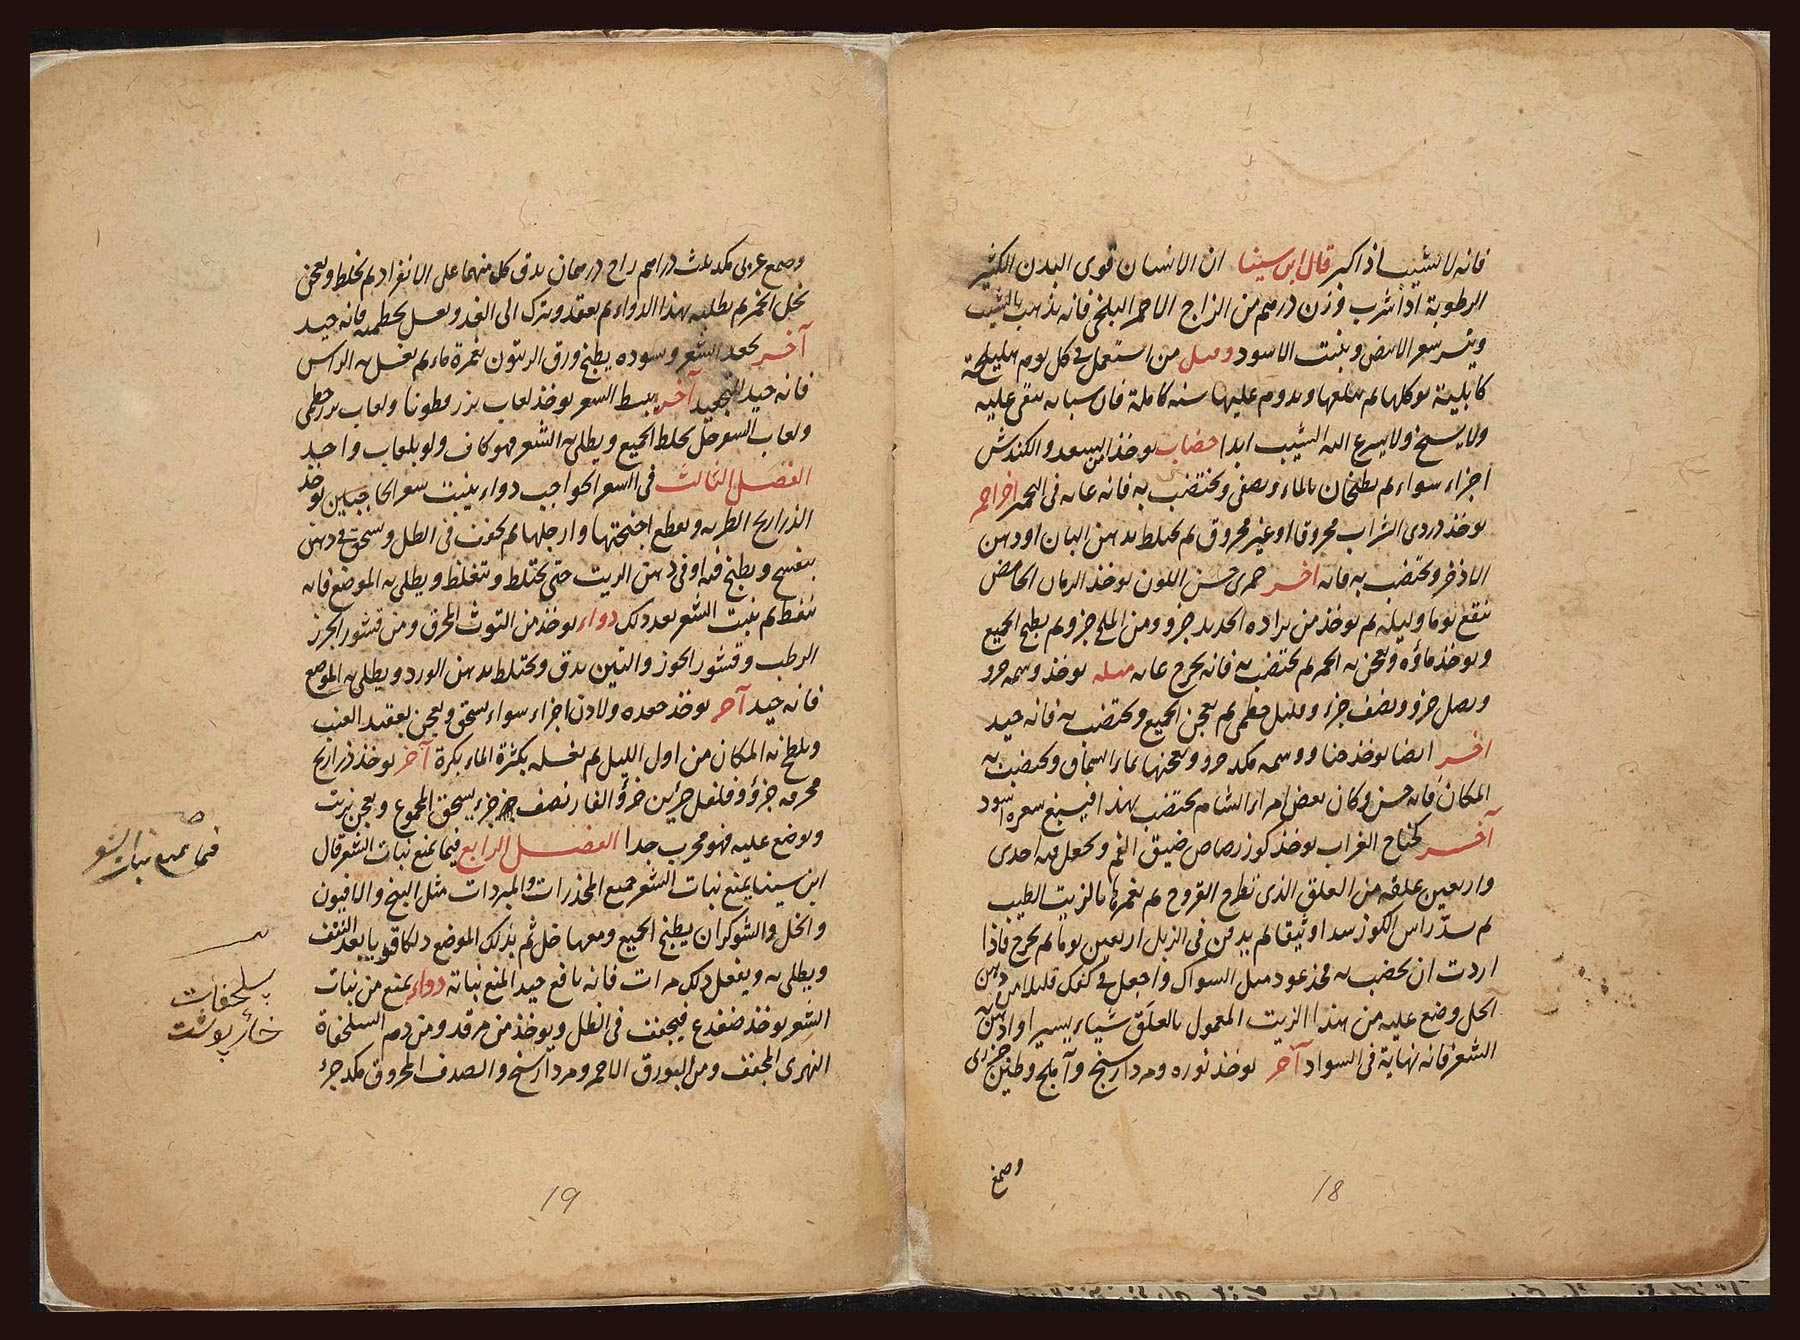 فانه لا يشيب اذا كبر قال ابن سينا ان الانسان قوى البدن الكثير
الرطوبة اذا شرب وزن درهم من الزاج الاحمر البلخى فانه يذهب بالشيب
وينثر شعر الابيض وينبت الاسود ومن استعمل فى كل يوم هليلجة
كابلية يوكلها ثم يبلعها ويدوم عليها سنة كاملة فان شبابه يبقى عليه
ولا يشيخ ولا يسرع اليه الشيب ابدا خضاب يوخذ من السعد والكندش
اجزاء سواء ثم يطبخان بالماء ويصفى ويختضب به فانه غاية فى
يوخذ دردى الشراب محروقا او غير محروق ثم يخلط بدهن البان او دهن
الاذخر ويختضب به فانه اخر خمرى حسن اللون يوخذ الرمان الحامض
ينقع يوما وليلة ثم يوخذ من برادة الحديد جزو ومن الملح جزو ثم يطبخ الجميع
ويوخذ ماؤه ويعجن به ثم يختضب به فانه يخرج غاية مثله يوخذ وسمه جزو
وبصل جزو ونصف جزء خطمى ثم يعجن الجميع ويختضب به فانه جيد
اخر ايضا يوخذ حنا ووسمه مكد جزو ويعجنها بماء السماق ويختضب به
المكان فانه حسن وكان بعض امراء الشام يختضب بهذا فيصبغ شعره اسود
آخر كجناح الغراب يوخذ كوز رصاص ضيق الفم ويجعل فيه احدى
واربعين علقه من العلق الذى تطرح القروح ثم يغمرها بالزيت الطيب
ثم سد راس الكوز سدا وثيقا ثم يدفن فى الزبل اربعين يوما ثم يخرج فاذا
اردت ان تخضب به فخذ عود مثل السواك واجعل فى كفك قليلا من دهن
الحل وضع عليه من هذا الزيت المعمول بالعلق شياء يسيرا وادهن به
الشعر فانه نهاية فى السواد آخر يوخذ نوره ومرداسنج وآملج وطين
وصمغ
18
وصمغ عربى مكد ثلث دراهم زاج درهمان يدق كل منهما على الانفراد ثم يخلط ويعجن
بخل الخمر ثم يطلبه بهذا الدواء ثم يعقد ويترك الى الغد ويغسل بخطميه فانه جيد
آخر يجعد الشعر ويسوده يطبخ ورق الزيتون بغمرة ماء ثم يغسل به الراس
فانه جيد للتجعيد آخر يبسط الشعر يوخذ لعاب بزر قطونا ولعاب بزر خطمى
ولعاب السفرجل يخلط الجميع ويطلى به الشعر فهو كاف ولو بلعاب واحد
الفصل الثالث فى الشعر الحواجب دواء ينبت شعر الحاجبين يوخذ
الذراريح الطرية ويقطع اجنحتها وارجلها ثم يجفف فى الظل ويسحق فى دهن
بنفسج ويطبخ فيه او فى دهن الزيت حتى يختلط ويتغلظ ويطلى به الموضع فانه
ينفط ثم ينبت الشعر بعد ذلك دواء يوخذ من التوث المحرق ومن قشور الجوز
الرطب وقشور الجوز والتين يدق ويختلط بدهن الورد ويطلى به الموضع
فانه جيد آخر يوخذ جعده ولادن اجزاء سواء يسحق ويعجن بعقيد العنب
ويلطخ به المكان من اول الليل ثم يغسله بكثرة الماء بكرة آخر يوخذ ذراريح
محرقه جزؤ وفلفل جزئين خرؤ الفار نصف جزء يسحق المجموع ويعجن بزيت
ويوضع عليه فهو مجرب جدا الفصل الرابع فيما يمنع نبات الشعر قال
ابن سينا يمنع نبات الشعر جميع المخدرات والمبردات مثل البنج والافيون
والخل والشوكران يطبخ الجميع ومعها خل ثم يدلك الموضع دلكا قويا بعد النتف
ويطلى به ويفعل ذلك مرات فانه نافع جيد المنع نباته دواء يمنع من نبات
الشعر يوخذ ضفدع فيجفف فى الظل ويوخذ من مرقد ومن دم السلحفاة
النهرى المجفف ومن البورق الاحمر ومرداسنج والصدف المحروق مكد جزؤ
فيما يمنع نبات الشعر
سلحفات
خارپوشت
19